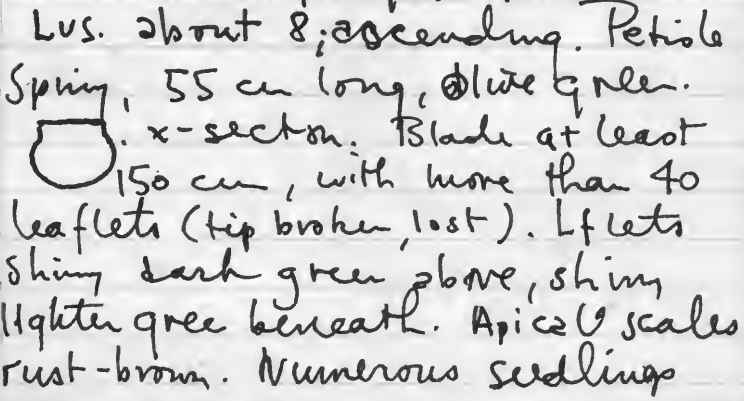 Lvs. about 8; ascending. Petiole
Spiny, 55 cm long, olive green.
x-section. Blade at least
150 cm, with more than 40
leaflets (tip broken, lost). Lflets
Shiny dark green above, shiny
lighter gree beneath. Apical scales
rust-brown. Numerous seedlings